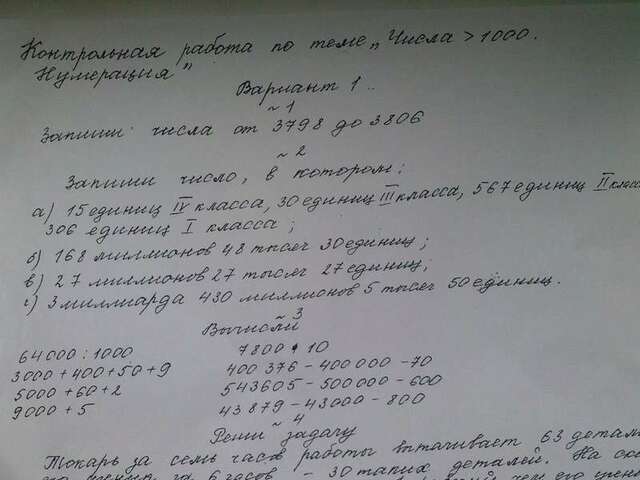 Контрольная работа по теме „Числа > 1000.
Нумерация"
Вариант 1.
~ 1
Запиши числа от 3798 до 3806
~ 2
Запиши число, в котором:
а) 15 единиц IV класса, 30 единиц III класса, 567 единиц II класса
306 единиц I класса;
б) 168 миллионов 48 тысяч 30 единиц;
в) 27 миллионов 27 тысяч 27 единиц;
г) 3 миллиарда 430 миллионов 5 тысяч 50 единиц.
~ 3
Вычисли
64000 : 1000 7800 • 10
3000 + 400 + 50 + 9 400 376 - 400 000 - 70
5000 + 60 + 2 543605 - 500000 - 600
9000 + 5 43 879 - 43000 - 800
~ 4
Реши задачу
Токарь за семь часов работы вытачивает 63 детали
за 6 часов - 30 таких деталей. На
чем его